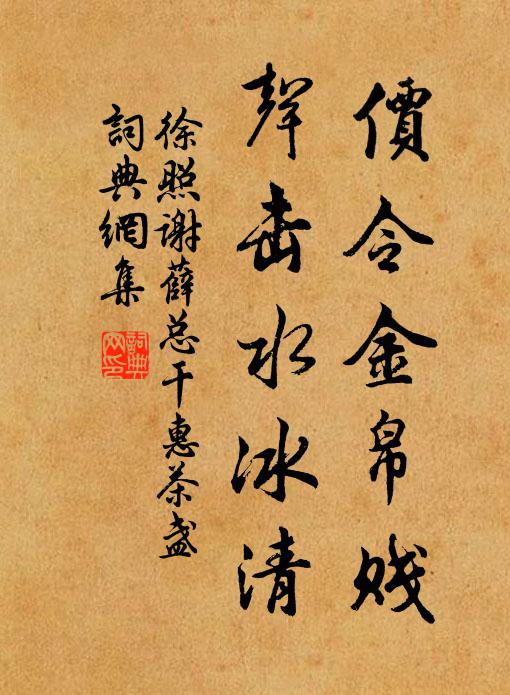 價令金帛賤
聲击水冰清
徐照谢薛总干惠茶盏
詞典網集
詞典網印